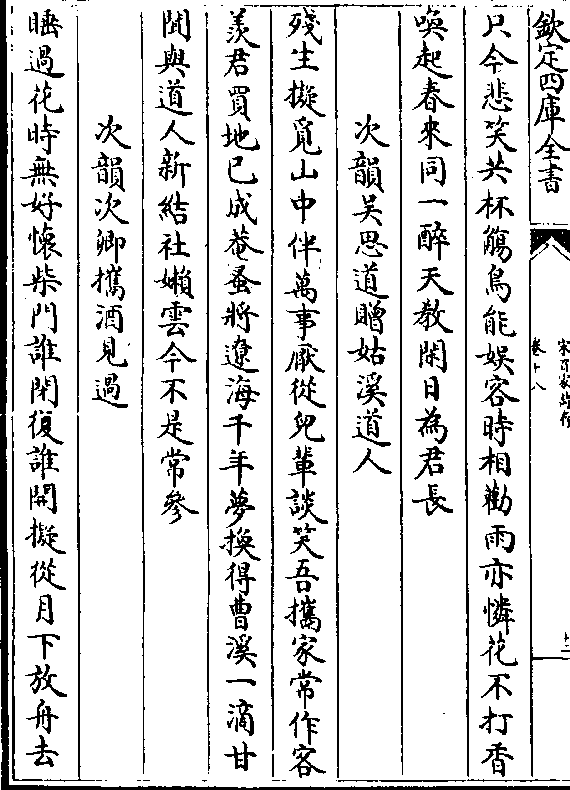 欽定四庫全書
宋百家詩存
卷十八
十二
只今悲笑共杯觴鳥能娛客時相勸雨亦憐花不打香
喚起春來同一醉天教閑日為君長
次韻吴思道贈姑溪道人
殘生擬覓山中伴萬事厭從兒輩談笑吾攜家常作客
羡君買地已成菴蚤將遼海千年夢換得曹溪一滴甘
聞與道人新結社嬾雲今不是常參
次韻次卿攜酒見過
睡過花時無好懷柴門誰閉復誰開擬從月下放舟去